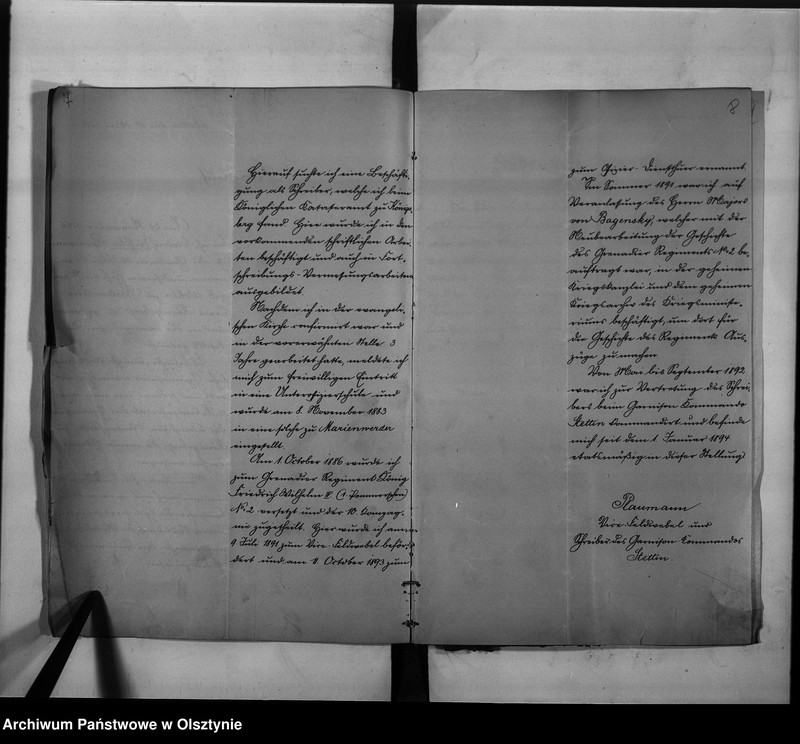 7
Hierauf suchte ich eine Beschäfti-
gung als Schreiber, welche ich beim
Königlichen Katasteramt zu Königs-
berg fand. Hier wurde ich in den
vorkommenden schriftlichen Arbei-
ten beschäftigt und auch in Fort-
schreibungs-Vermessungsarbeiten
ausgebildet.
Nachdem ich in der evangeli-
schen Kirche confirmirt war und
in der vorerwähnten Stelle 3
Jahre gearbeitet hatte, meldete ich
mich zum freiwilligen Eintritt
in eine Unteroffizierschule und
wurde am 8. November 1883
in eine solche zu Marienwerder
eingestellt.
Am 1. October 1886 wurde ich
zum Grenadier Regiment König
Friedrich Wilhelm IV (1. Pommersches)
No. 2 versetzt und der 10. Compag-
nie zugetheilt. Hier wurde ich am
9 Juli 1891 zum Vice Feldwebel beför-
dert und am October 1893 zum
8
zum Offizier-Dienstthuer ernannt.
Im Sommer 1891 war ich auf
Veranlassung des Herrn Majors
von Bagensky, welcher mit der
Neubearbeitung der Geschichte
des Grenadier Regiments No. 2 be-
auftragt war, in der geheimen
Kriegskanzlei und dem geheimen
Kriegsarchiv des Kriegsministe-
riums beschäftigt, um dort für
die Geschichte des Regiments Aus-
züge zu machen.
Von Mai bis September 1892
war ich zur Vertretung des Schrei-
bers beim Garnison Kommando
Stettin kommandirt und befinde
mich seit dem 1. Januar 1894
etatsmäßig in dieser Stellung.
Raumann
Vice Feldwebel und
Schreiber des Garnison Kommandos
Stettin.
Archiwum Państwowe w Olsztynie